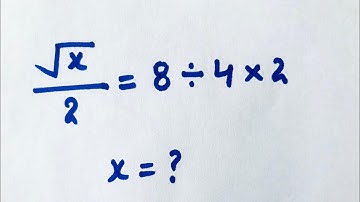 √x/2 = 8 ÷ 4 × 2
x = ?